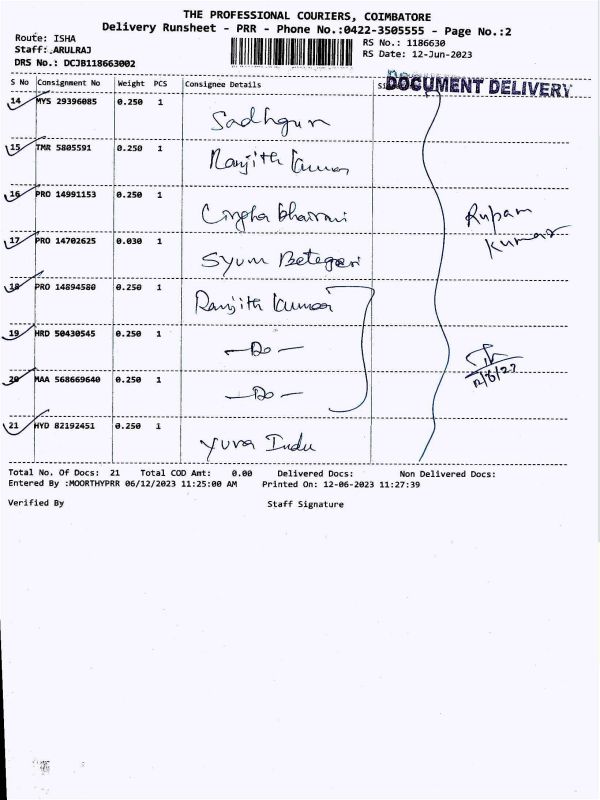 THE PROFESSIONAL COURIERS, COIMBATORE
Delivery Runsheet - PRR - Phone No.:0422-3505555 - Page No.:2
Route: ISHA
Staff: ARULRAJ
DRS No.: DCJB118663002
RS No.: 1186630
RS Date: 12-Jun-2023
S No Consignment No Weight PCS Consignee Details
DOCUMENT DELIVERY
14 MYS 29396085 0.250 1 Sadhguru
15 TMR 5805591 0.250 1 Ranjith Kumar
16 PRO 14991153 0.250 1 Bhairavi
Rupam
Kumar
17 PRO 14702625 0.030 1 Syum Betageri
18 PRO 14894580 0.250 1 Ranjith Kumar
19 HRD 50430545 0.250 1 —Do—
20 MAA 568669640 0.250 1 —Do—
12/6/23
21 HYD 82192451 0.250 1 Yuva Indu
Total No. Of Docs: 21 Total COD Amt: 0.00 Delivered Docs: Non Delivered Docs:
Entered By :MOORTHYPRR 06/12/2023 11:25:00 AM Printed On: 12-06-2023 11:27:39
Verified By Staff Signature